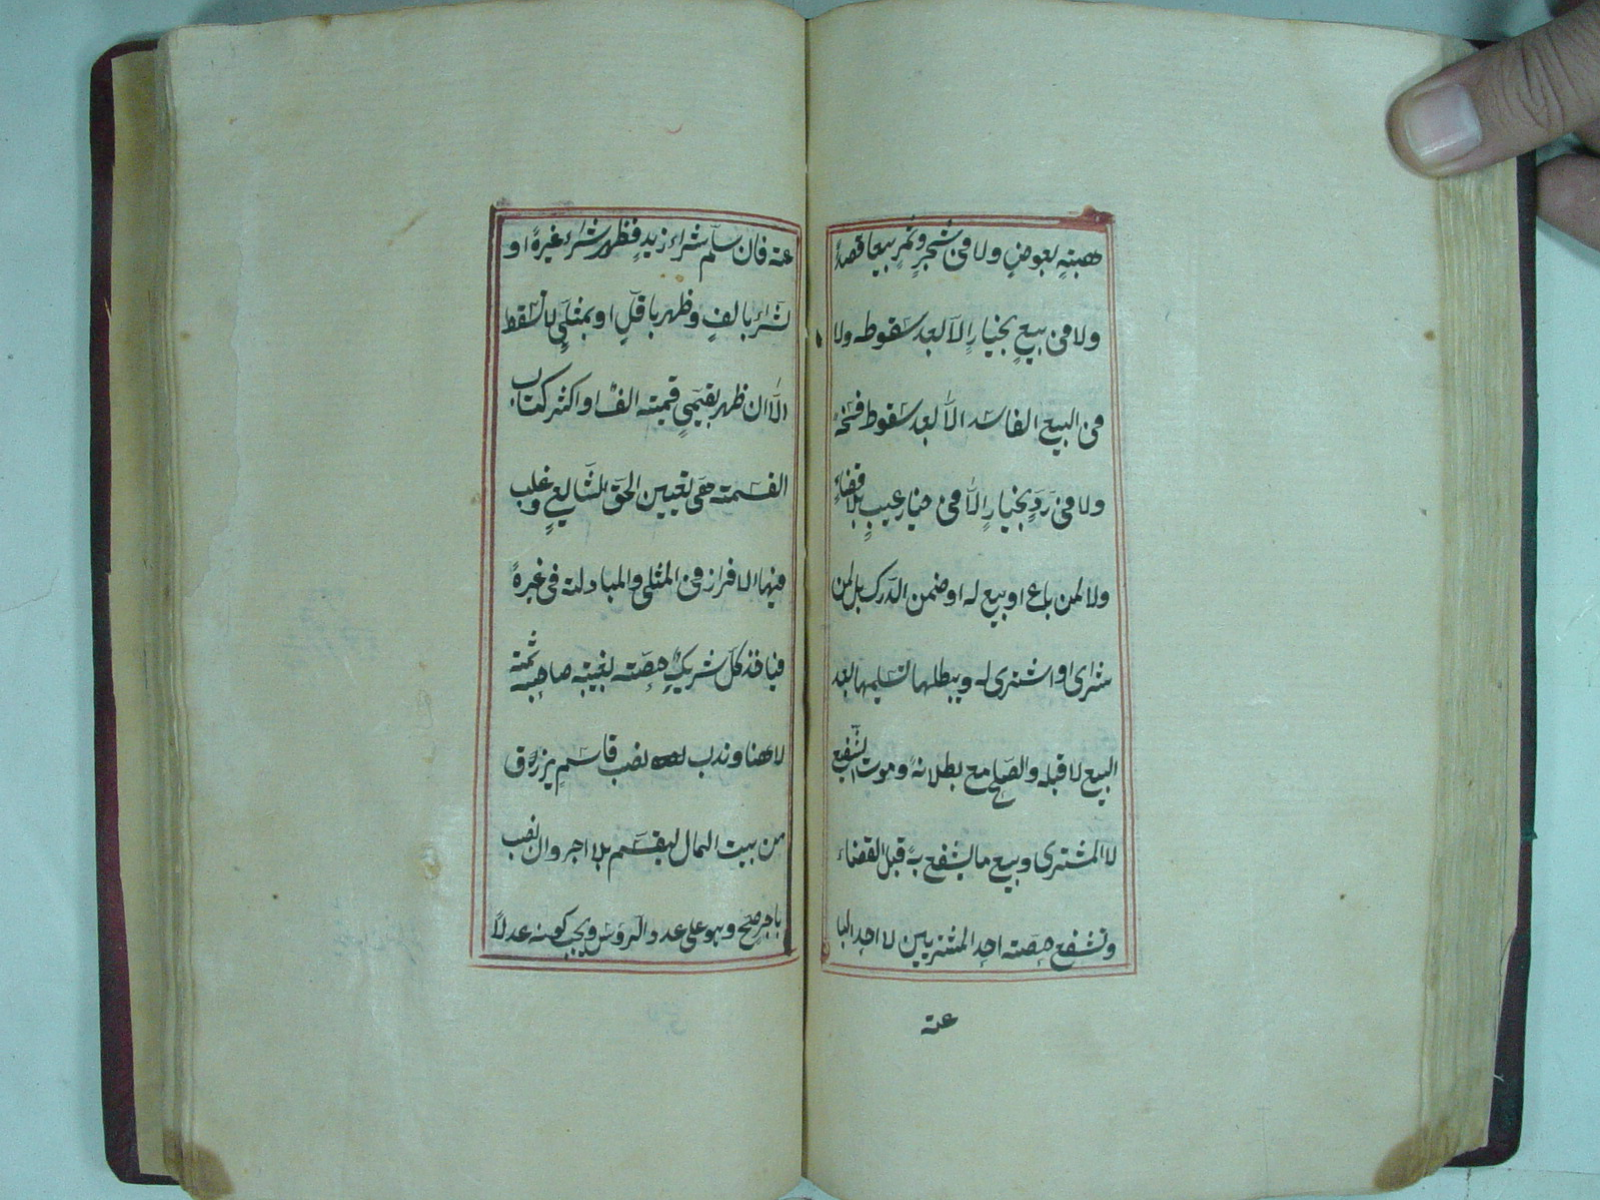 هبته بعوض ولا فى شجر وثمر بيعا قصداً
ولا فى بيع بخيار الا بعد سقوطه ولا
فى البيع الفاسد الا بعد سقوط فسخه
ولا فى رد بخيار الا فى خيار عيب بلا قضاء
ولا لمن باع او بيع له او ضمن الدرك بل لمن
شرى او اشترى له ويبطلها تسليمها بعد
البيع لا قبله والصلح مع بطلانه وموت الشفيع
لا المشترى وبيع ما يشفع به قبل القضاء
وتشفع حصته احد المشتريين لا احد البا
عته
عته فان سلّم شراء زيد فظهر شراء غيره او
شراء بالف وظهر باقل او بمثلي لا تسقط
الا ان ظهر بقيمي قيمته الف او اكثر كتاب
القسمته هى تعيين الحق الشايع وغلب
فيها الافراز فى المثلى والمبادلته فى غيره
فياخذ كل شريك حصته بغيبته صاحبه ثمته
لا هنا وندب نصب قاسم يرزق
من بيت المال ليقسم بلا اجر وان نصب
باجر صح وهو على عدد الروس ويجب كونه عدلاً